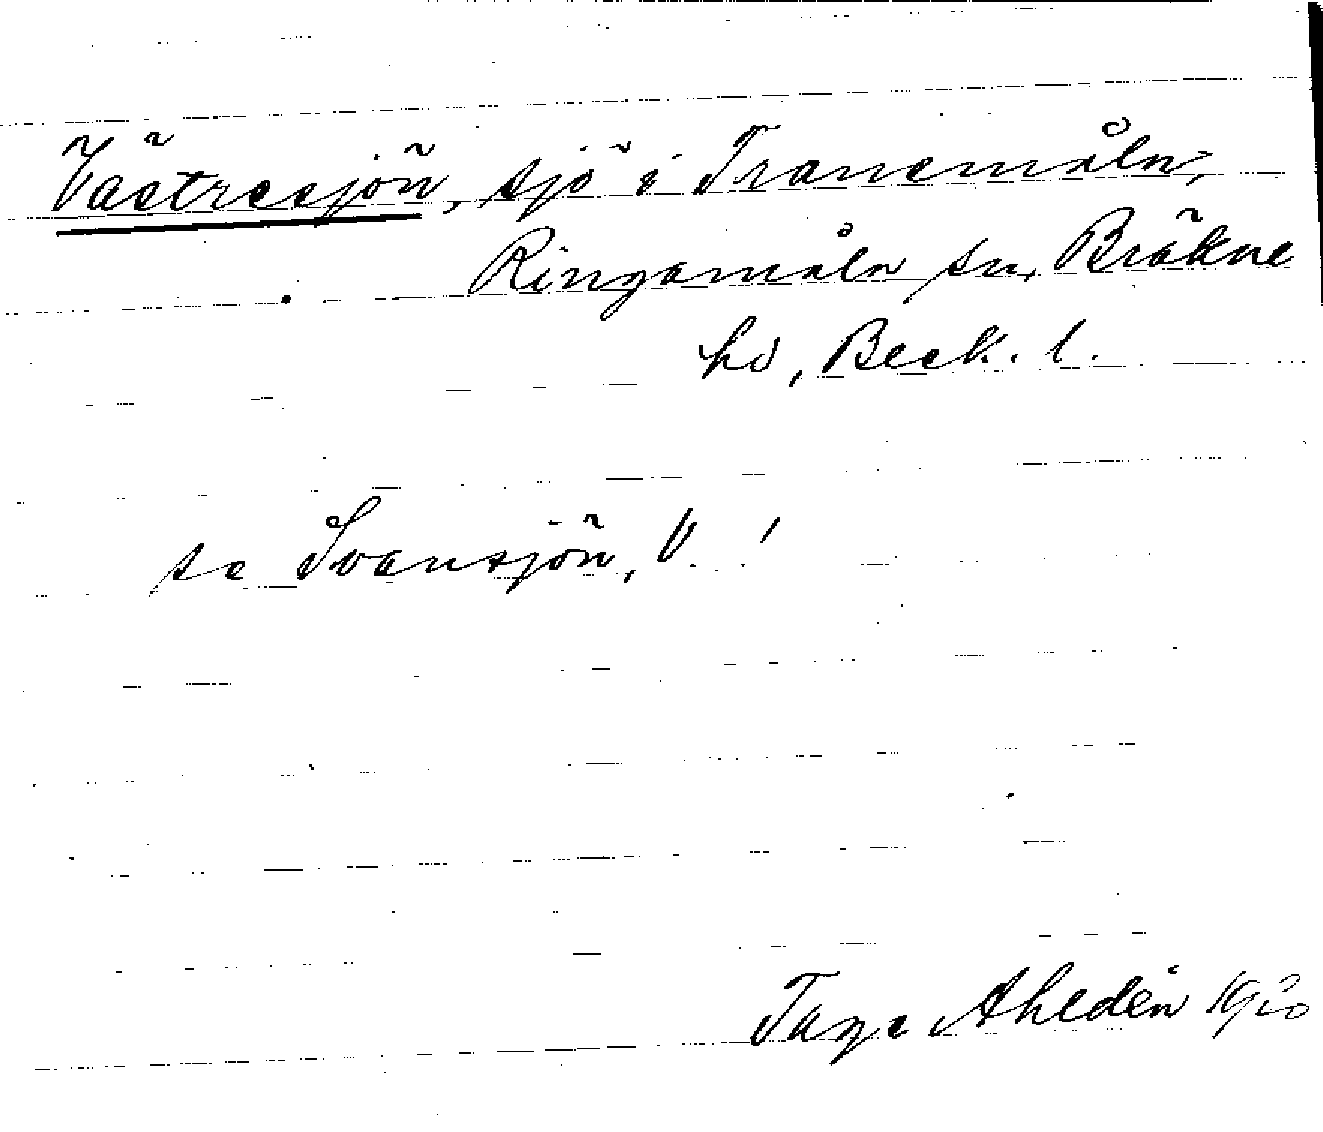 Västresjön, sjö i Tranemåla,
Ringamåla sn, Bräkne
hd, Bleck. l.
se Svansjön, V.!
Tage Ahldén 1920